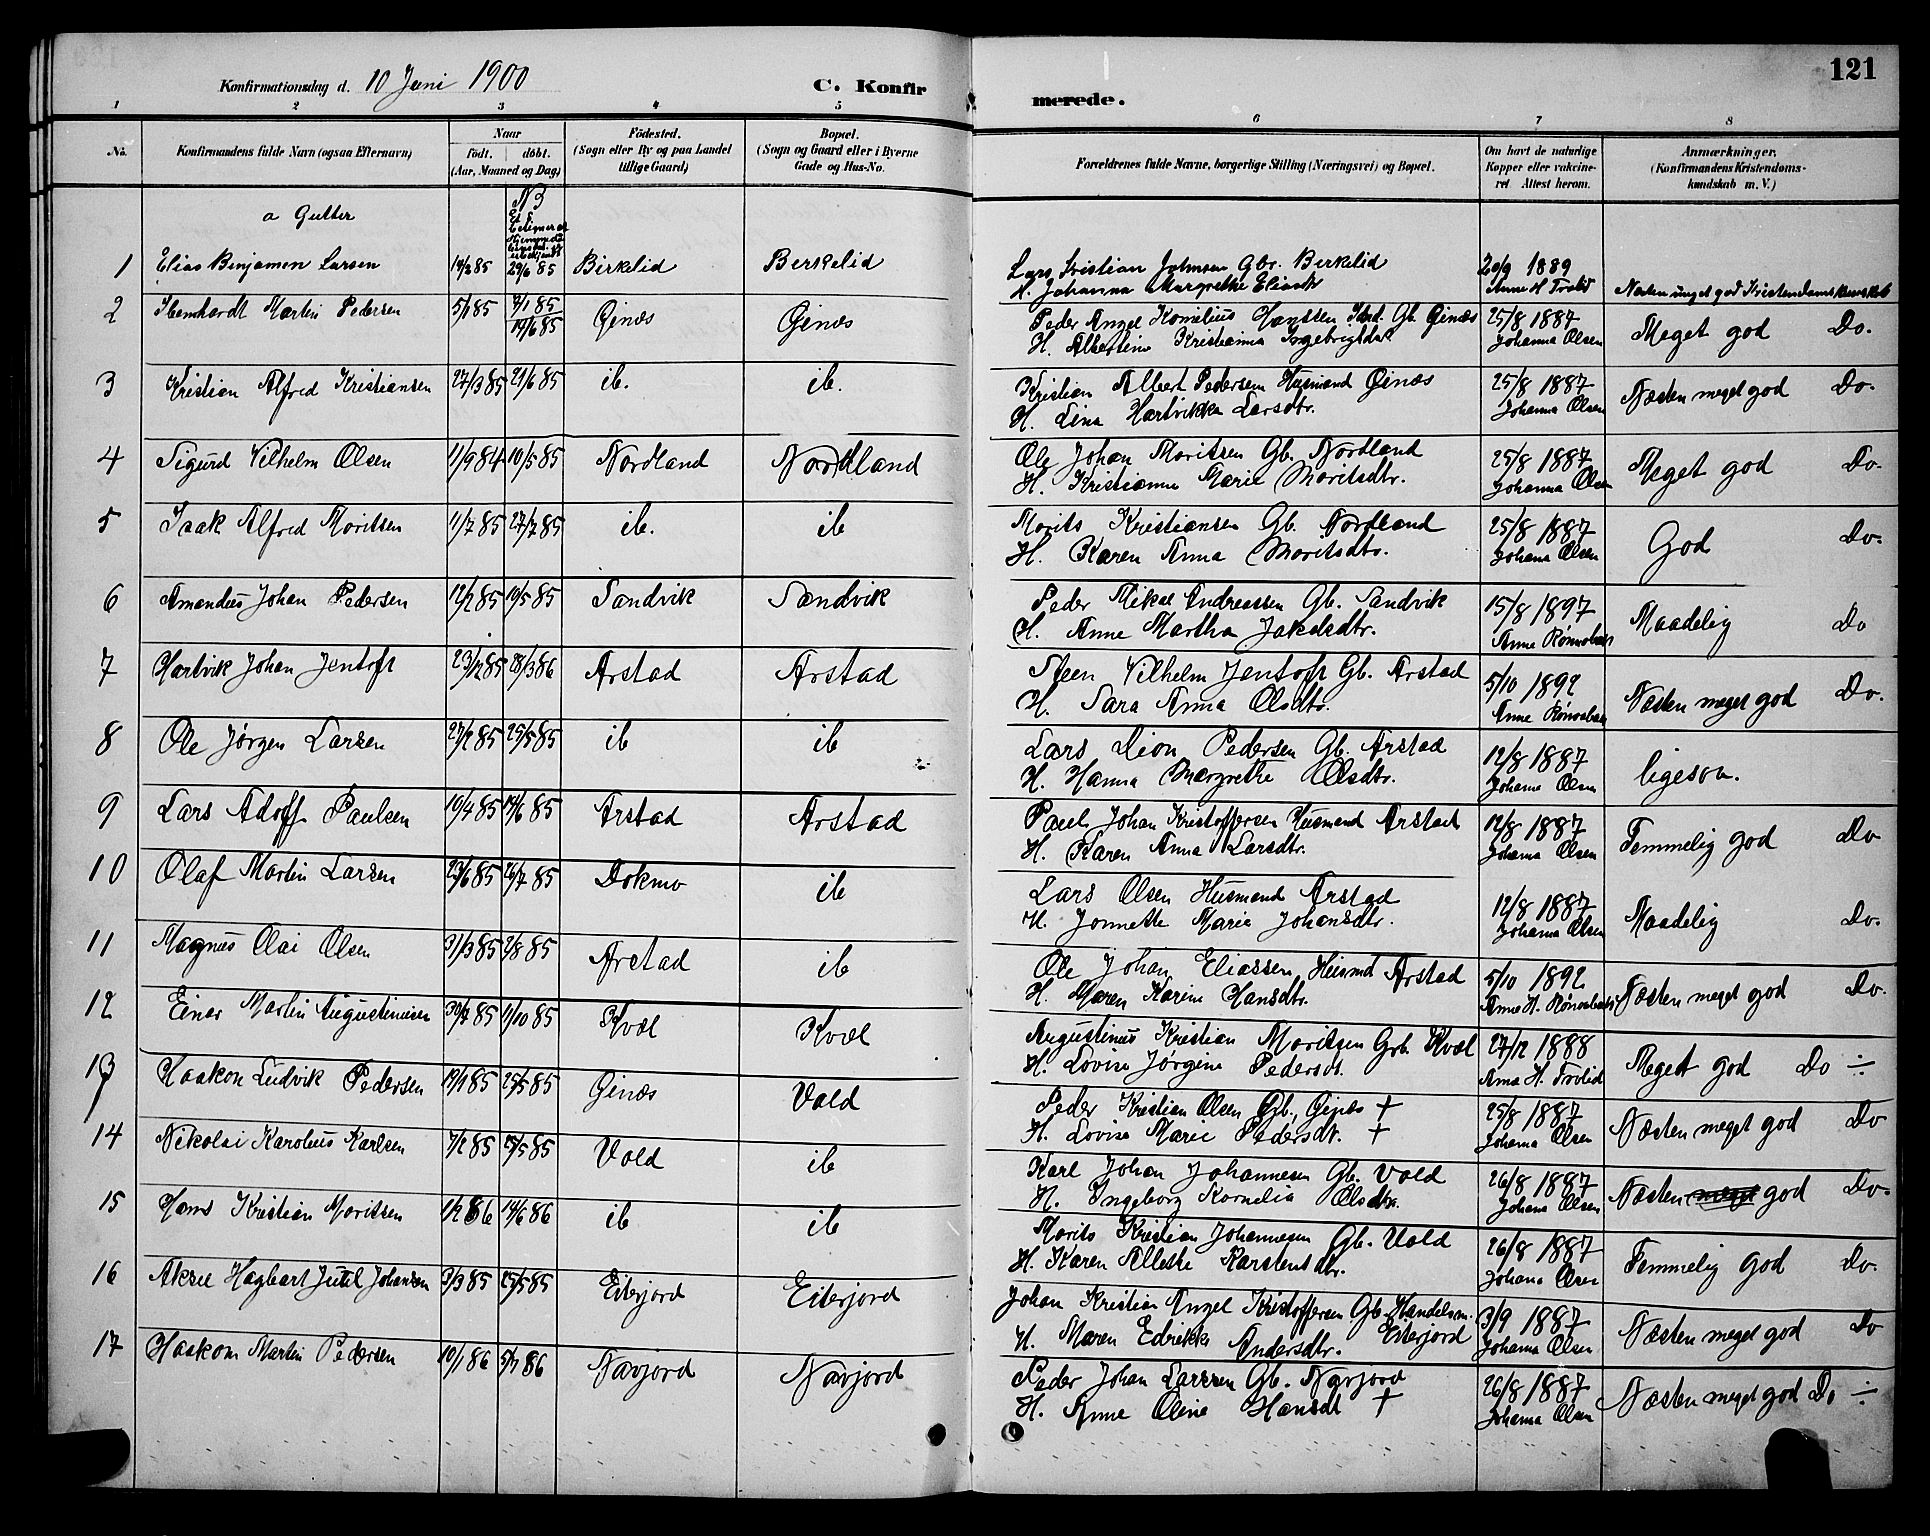 121
Konfirmationsdag d. 10 Juni 1900
C. Konfirmerede.
1 2 3 4 5 6 7 8
No.
Konfirmandens fulde Navn (ogsaa Efternavn)
Naar
födt. | döbt.
(Aar, Maaned og Dag)
Födested.
(Sogn eller By og paa Landet
tillige Gaard)
Bopæl.
(Sogn og Gaard eller i Byerne
Gade og Hus-No.
Forældrenes fulde Navne, borgerlige Stilling (Næringsvei) og Bopæl.
Om havt de naturlige
Kopper eller vakcine-
ret. Attest herom.
Anmærkninger.
(Konfirmandens Kristendoms-
kundskab m. V.)
a Gutter
NB
1 Elias Benjamin Larsen 14/3 85 29/6 85 Birkelid Berkelid
Lars Kristian Johnsen Gbr. Birkelid 20/9 1889
H. Johanna Margrethe Eliasdt Anne H Trolid Næsten meget god Kristendomskundskab
2 Bernhardt Martin Pedersen 5/1 85 7/1 85 Ginæs Ginæs
19/6 85
Peder Angel Kornelius Hanssen Gb Ginæs 25/8 1887 Meget god Do.
H. Albertine Kristianna Ingebrigtsdat Johanna Olsen
3 Kristian Alfred Kristiansen 27/3 85 21/6 85 ib. ib.
Kristian Albert Pedersen Husmand Ginæs 25/8 1887 Næsten meget god Do.
H. Lina Hartvikka Larsdtr. Johanna Olsen
4 Sigurd Vilhelm Olsen 11/9 84 10/5 85 Nordland Nordland
Ole Johan Moritsen Gb. Nordland 25/8 1887 Meget god Do.
H. Kristianne Marie Moritsdtr. Johanna Olsen
5 Isak Alfred Moritsen 11/7 85 27/7 85 ib. ib
Morits Kristiansen Gb. Nordland 25/8 1887 God Do.
H. Karen Anna Moritsdtr. Johana Olsen
6 Amandus Johan Pedersen 12/2 85 10/5 85 Sandvik Sandvik
Peder Mikal Andreassen Gb. Sandvik 15/8 1897 Maadelig Do
H. Anne Martha Jakobsdtr. Anne Rønnebæk
7 Hartvik Johan Jentoft 23/12 85 28/3 86 Arstad Arstad
Steen Vilhelm Jentoft Gb. Arstad 5/10 1892 Næsten meget god Do.
H. Sara Anna Olsdtr.
8 Ole Jørgen Larsen 27/2 85 25/5 85 ib ib
Lars Dion Pedersen Gb. Arstad 12/8 1887 ligesaa.
H. Hanna Margrethe Olsdtr. Johanne Olsen
9 Lars Adoff Paulsen 10/4 85 14/6 85 Arstad Arstad
Paul Johan Kristoffersen Husmand Arstad 12/8 1887 Temmelig god Do
H. Karen Anna Larsdtr. Johanna Olsen
10 Olaf Martin Larsen 23/6 85 26/7 85 Dokmo ib
Lars Olsen Husmand Arstad 12/8 1887 Maadelig Do.
H. Jonnette Marie Johansdtr. Johanna Olsen
11 Magnus Olai Olsen 31/3 85 2/8 85 Arstad ib
Ole Johan Eliassen Husmd Arstad 5/10 1892 Næsten meget god Do.
H. Maren Karine Hansdtr. Anne H. Rønnebæk
12 Einar Martin Augustinusen 30/7 85 11/10 85 Kvæl Kvæl
Augustinus Kristian Moritsen Gb. Kvæl 27/12 1888 Meget god Do ÷
H. Lovise Jørgine Pedersdt. Anna H. Trolid
13 Haakon Ludvik Pedersen 19/1 85 25/5 85 Ginæs Vold
Peder Kristian Olsen Gb. Ginæs + 25/8 1887 Næsten meget god Do
H. Lovise Marie Pedersdt. + Johanna Olsen
14 Nikolai Karolius Karlsen 7/2 85 25/5 85 Vold ib
Karl Johan Johannesen Gb. Vold 26/8 1887 Næsten meget god Do.
H. Ingeborg Kornelia Olsdtr. Johana Olsen
15 Hans Kristian Moritsen 1/2 86 14/6 86 ib ib
Morits Kristian Johannesen Gb. Vold 26/8 1887 Temmelig god Do.
H. Karen Allette Karstensdtr. Johana Olsen
16 Aksel Hagbart Jutel Johansen 3/3 85 25/5 85 Eiterjord Eiterjord
Johan Kristian Angel Kristoffersen Gb. Handelsm. 3/9 1887 Næsten meget god Do
H. Maren Edrikke Andersdtr. Eiterjord Johanna Olsen
17 Haakon Martin Pedersen 10/1 86 5/7 86 Navjord Navjord
Peder Johan Larssen Gb. Navjord 26/8 1887 Næsten meget god Do ÷
H. Anne Oline Hansdt + Johanna Olsen